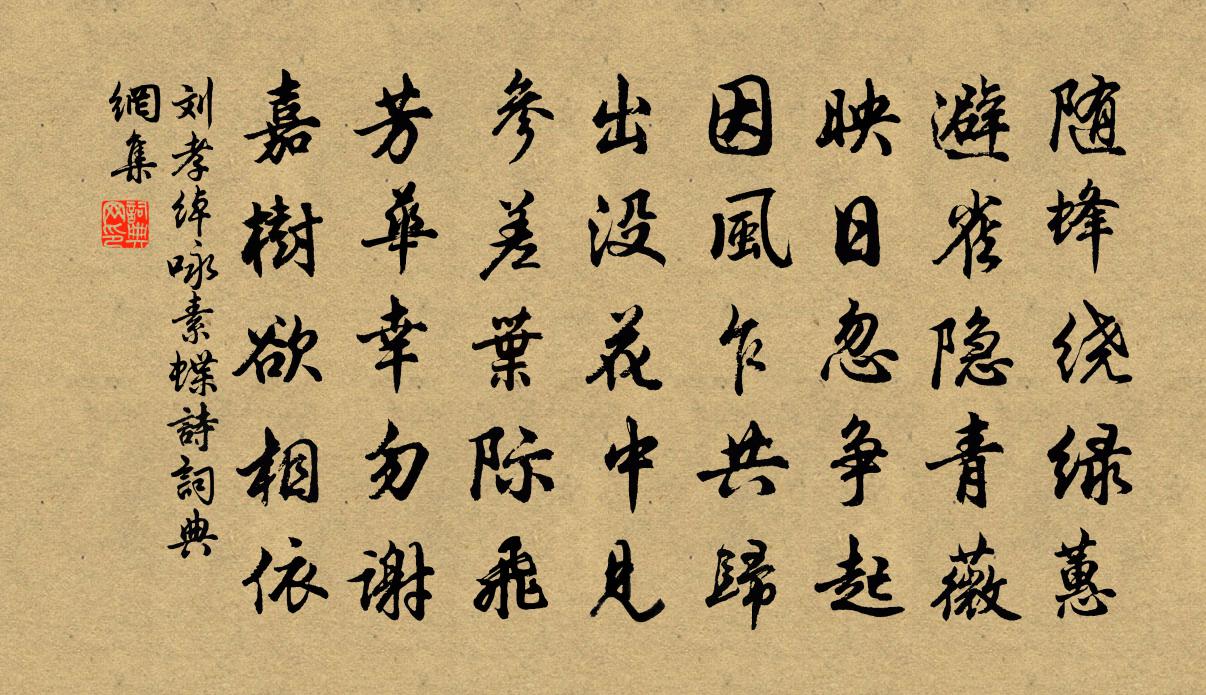 随蜂绕绿蕙
避雀隐青薇
映日忽争起
因風乍共歸
出没花中見
參差葉际飛
芳華幸勿谢
嘉樹欲相依
刘孝绰咏素蝶詩詞典
網集
詞典
网印